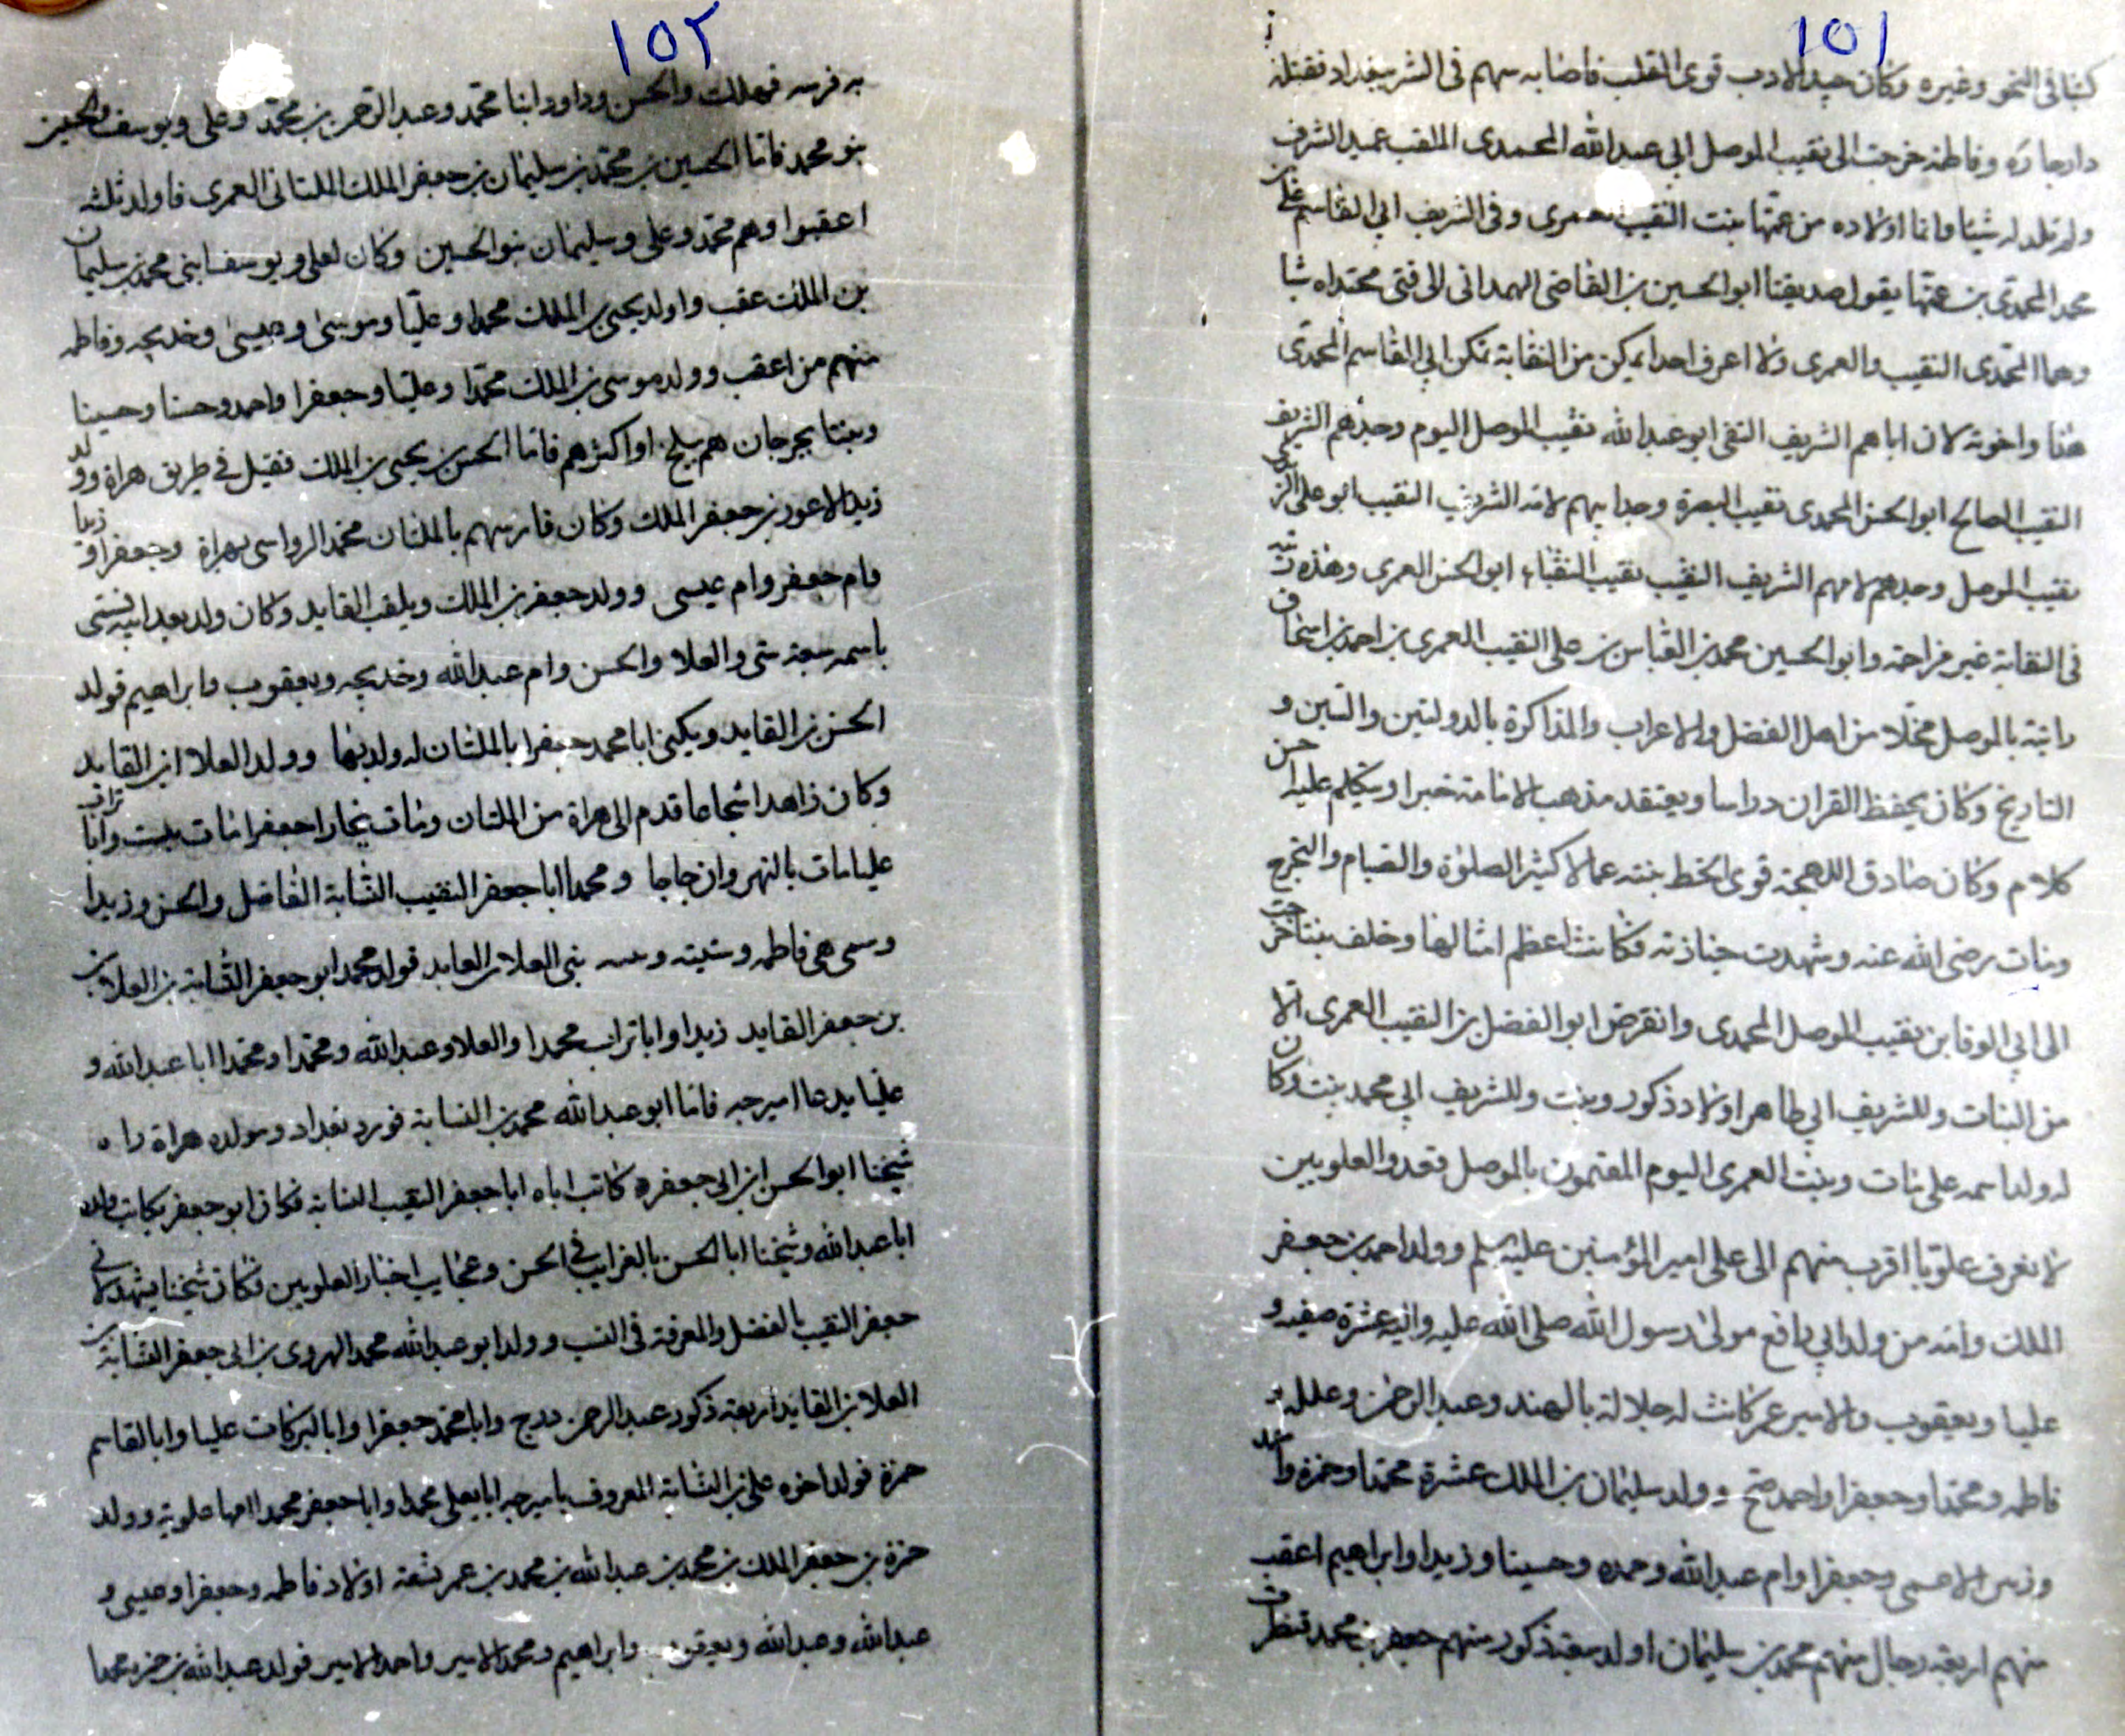 ١٥١
كتبا فى النحو وغيره وكان جيد الادب قوى القلب فاصابه سهم فى الشر ببغداد فقتله
دار جاره وفاطمة خرجت الى نقيب الموصل ابي عبد الله المحمدى الملقب عميد الشرف
ولم تلد له شيئا وانما اولاده من عمتها بنت النقيب العمرى وفى الشريف ابي القاسم على بن
محمد المحمدى بن عمتها يقول صديقنا ابو الحسين بن القاضى الهمدانى لاى فتى محتداه شا
وهما المحمدى النقيب والعمرى ولا اعرف احدا يمكن من النقابة تمكن ابي القاسم المحمدى
هذا واخوته لان اباهم الشريف التقى ابو عبد الله نقيب الموصل اليوم وجدهم الشريف
النقيب الصالح ابو الحسن المحمدى نقيب البصرة وجد ابيهم لامه الشريف النقيب ابو على
نقيب الموصل وجدهم لامهم الشريف النقيب نقيب النقباء ابو الحسن العمرى وهذه
فى النقابة غير مزاحمة وابو الحسين محمد بن القباس بن على النقيب العمرى بن احمد بن اسحاق
رايته بالموصل من اهل الفضل والاعراب والمذاكرة بالدولتين والسير و
التاريخ وكان يحفظ القران دراسا ويعتقد مذهب الامامة خبرا ويتكلم عليه احسن
كلام وكان صادق اللهجة قوى الخط كثير الصلوة والصيام والتحرج
ومات رضى الله عنه وشهدت جنازته فكانت اعظم امثالها وخلف بنتا خرجت
الى ابي الوفا بن نقيب الموصل المحمدى وانقرض ابو الفضل بن النقيب العمرى الا
من البنات وللشريف ابي طاهر اولاد ذكور وبنت وللشريف ابي محمد بنت وكان
له ولد اسمه على مات وبنت العمرى اليوم المقيمون بالموصل قعدد العلويين
لا نعرف علويا اقرب منهم الى على امير المؤمنين عليه سلم وولد احمد بن جعفر
الملك وامه من ولد ابي رافع مولى رسول الله صلى الله عليه واليه عشرة صفيه و
عليا ويعقوب والامير عمر كانت له جلالة بالهند وعبد الرحمن
فاطمه ومحمدا وجعفرا واحمد وولد سليمان بن الملك عشرة محمدا وحمزة واحمد
وجعفرا وام عبد الله وحمده وحسينا وزيدا وابراهيم اعقب
منهم اربعة رجال منهم محمد بن سليمان اولد سبعة ذكور منهم جعفر بن محمد
١٥٢
به فرسه فهلك والحسن وداود ابنا محمد وعبد الرحمن بن محمد وعلى ويوسف والحسين
بنو محمد فاما الحسين بن محمد بن سليمان بن جعفر الملك الملتانى العمرى فاولد ثلثه
اعقبوا وهم محمد وعلى وسليمان بنو الحسين وكان لعلى ويوسف ابنى محمد بن سليمان
بن الملك عقب واولد يحيى بن الملك محمدا وعليا وموسى وعيسى وخديجه وفاطمه
منهم من اعقب وولد موسى بن الملك محمدا وعليا وجعفرا واحمد وحسنا وحسينا
وبنتا بجرجان هم ببلخ او اكثرهم فاما الحسن بن يحيى بن الملك فقيل فى طريق هراة وولد
زيد الاعور بن جعفر الملك وكان فارسهم بالملتان محمد الرواسى بهراة وجعفرا
وام جعفر وام عيسى وولد جعفر بن الملك ويلقب القايد وكان ولد بعد ابيه فسمى
باسمه سبعة ستى والعلا والحسن وام عبد الله وخديجه ويعقوب وابراهيم فولد
الحسن بن القايد ويكنى ابا محمد جعفرا بالملتان له ولد بها وولد العلا ابن القايد
وكان زاهدا شجاعا قدم الى هراة من الملتان ومات ببخارا جعفرا مات ببست وابا تراب
عليا مات بالنهروان حاجا ومحمدا ابا جعفر النقيب النسابة الفاضل والحسن وزيدا
وسمى هى فاطمه وستيته بنى العلا بن القايد فولد محمد ابو جعفر النسابة بن العلا بن
بن جعفر القايد زيدا وابا تراب محمدا والعلا وعبد الله ومحمدا ومحمدا ابا عبد الله و
عليا يدعا اميرجه فاما ابو عبد الله محمد بن النسابة فورد بغداد ومولده هراة راه
شيخنا ابو الحسن بن ابى جعفره كاتب اباه ابا جعفر النقيب النسابة فكان ابو جعفر يكاتب ولده
ابا عبد الله وشيخنا ابا الحسن بالغرايب فى الحسن وعجايب اخبار العلويين فكان شيخنا يشهد لابى
جعفر النقيب بالفضل والمعرفة فى النسب وولد ابو عبد الله محمد الهروى بن ابى جعفر النسابة بن
العلا بن القايد اربعة ذكور عبد الرحمن درج وابا محمد جعفرا وابا البركات عليا وابا القاسم
حمزة فولد اخوه على بن النسابة المعروف باميرجه ابا يعلى محمدا وابا جعفر محمدا امها علوية وولد
حمزة بن جعفر الملك بن محمد بن عبد الله بن محمد بن عمر تسعة اولاد فاطمه وجعفرا وعيسى و
عبد الله وعبد الله ويعقوب وابراهيم ومحمد الامير واحمد الامير فولد عبد الله بن حمزه محمدا